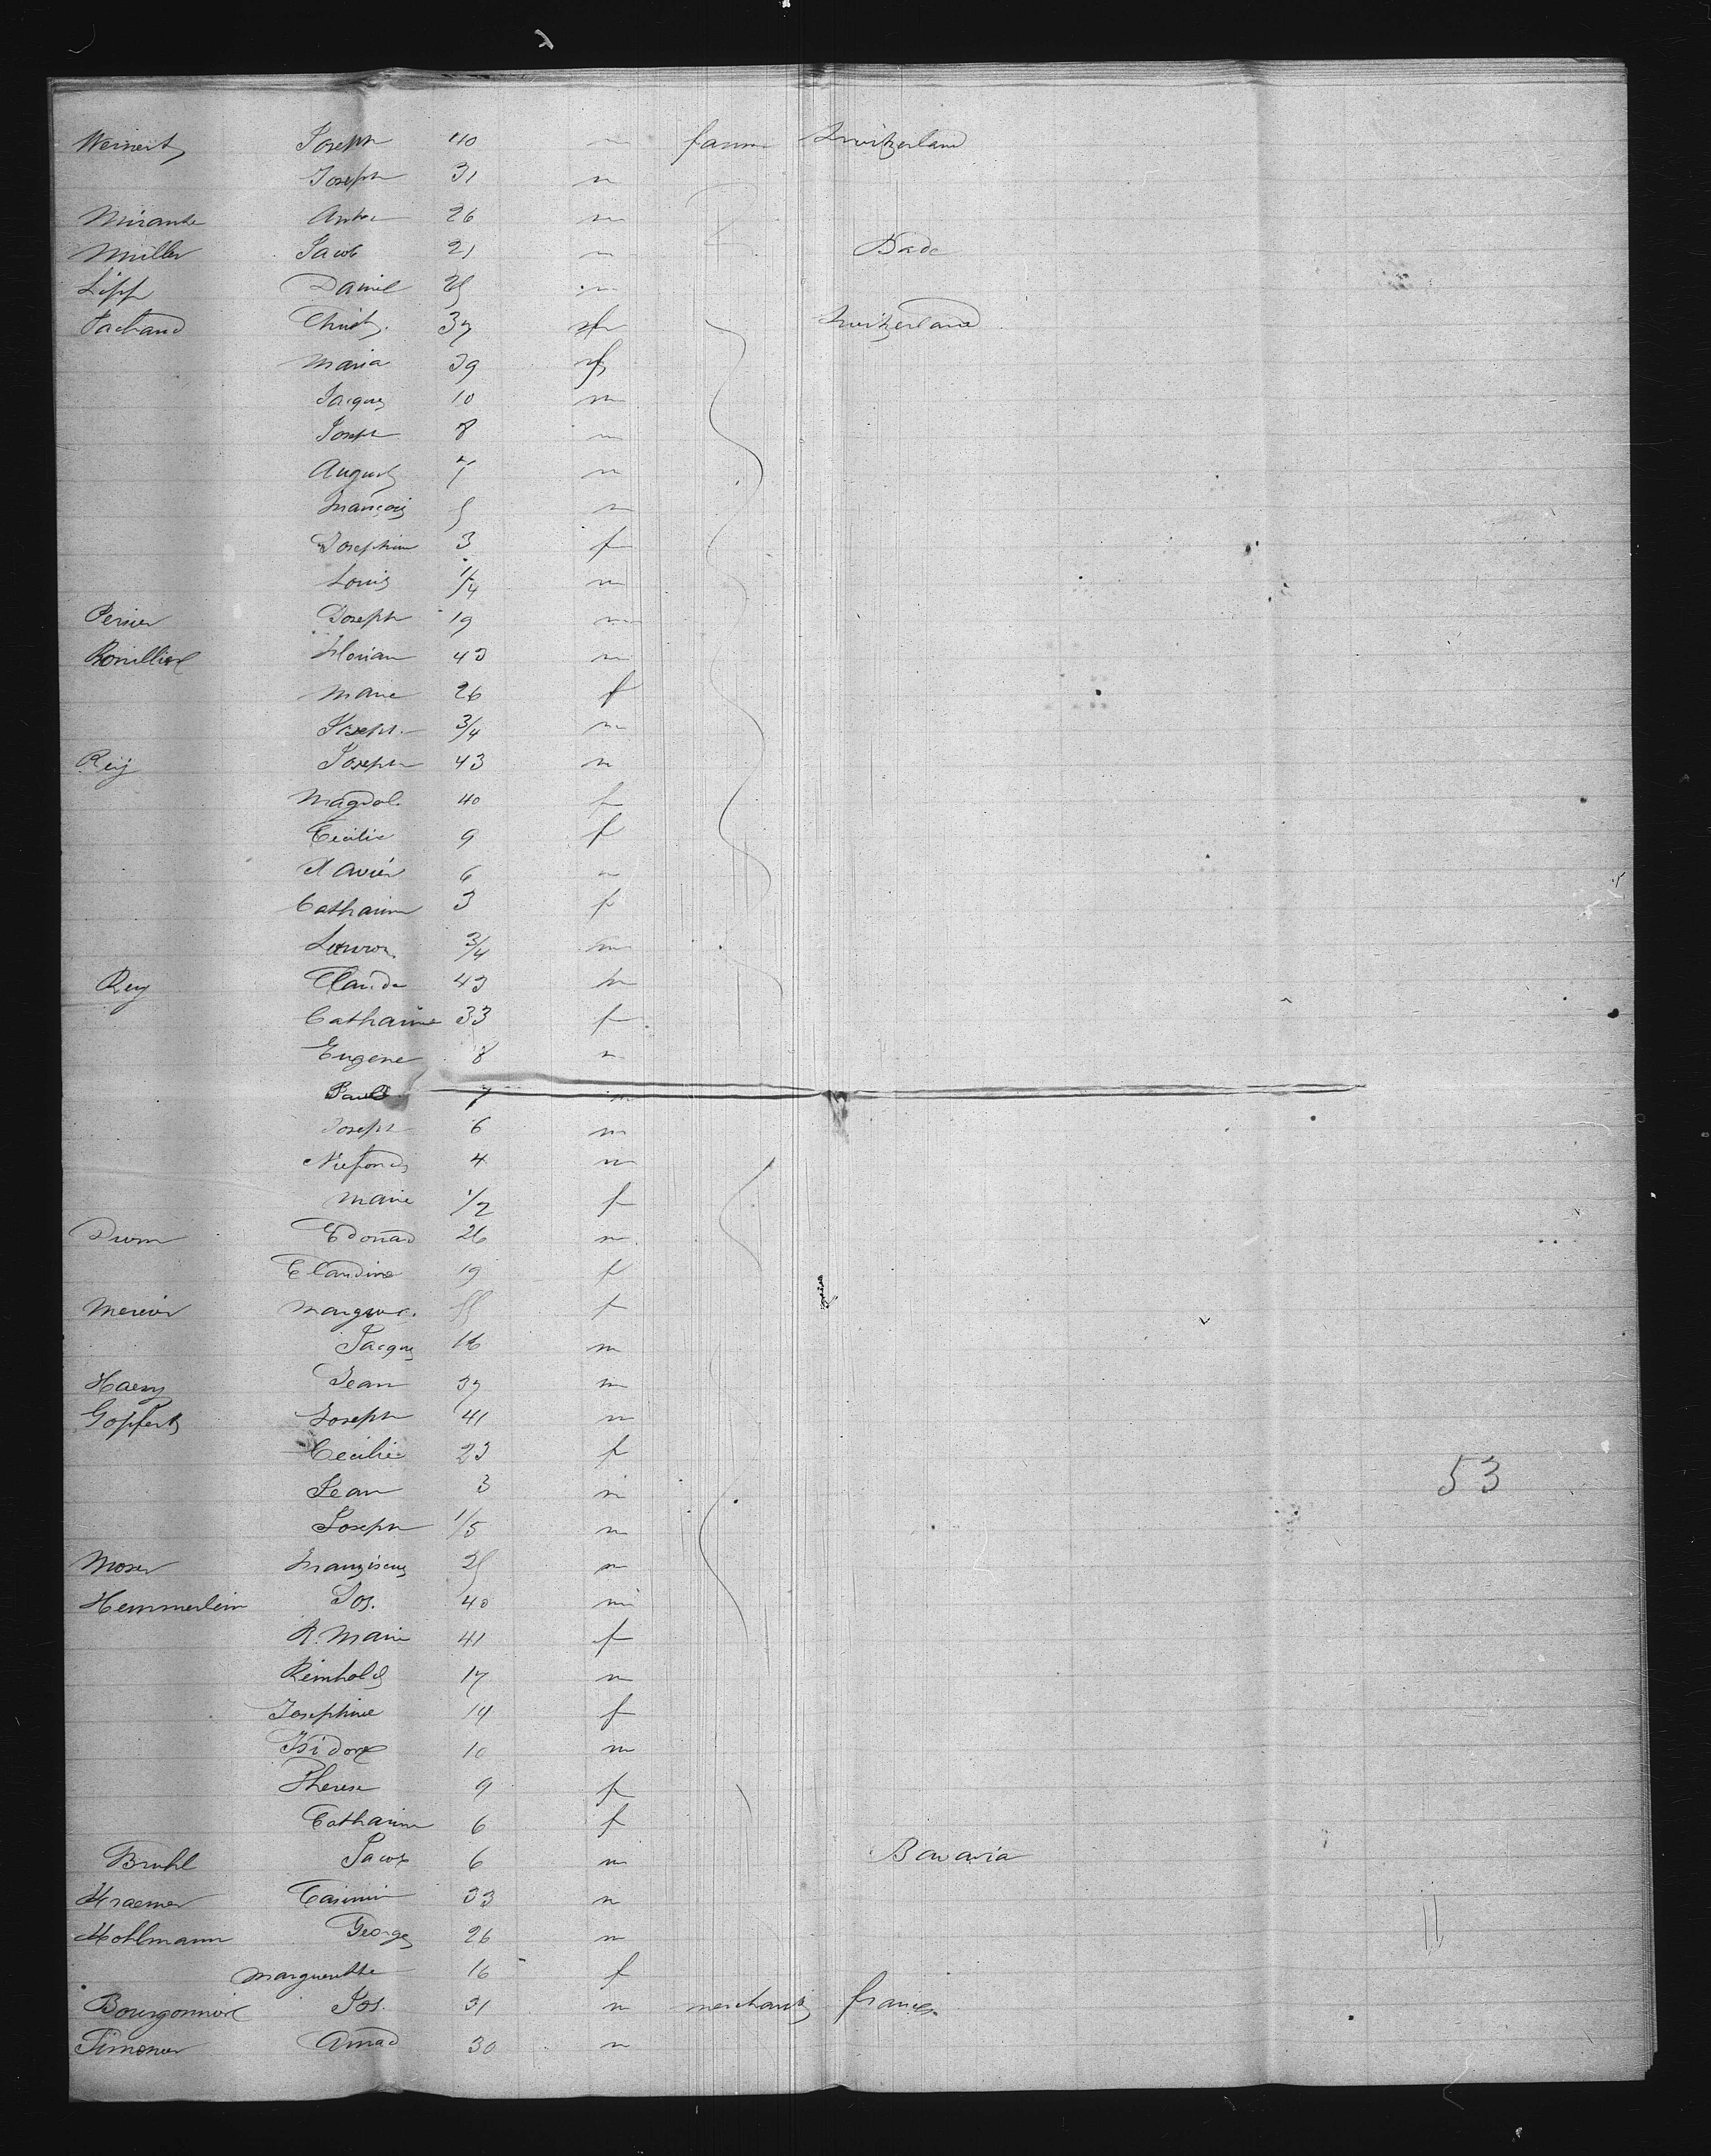 Joseph 40 m farmer Switzerland
Joseph 31 m
26 m
Müller Jacob 21 m Bade
Lipp Daniel 25 m
Pachoud Christ. 37 m Switzerland
Maria 39 f
Jacques 10 m
Joseph 8 m
August 7 m
François 5 m
Josephine 3 f
Louis 1/4 m
Perrier Joseph 19 m
Florian 43 m
Marie 26 f
Joseph 3/4 m
Rey Joseph 43 m
Magdal. 40 f
Cecilie 9 f
Xavier 6 m
Catharine 3 f
3/4 m
Rey Claude 43 m
Catharine 33 f
Eugene 8 m
Paul 7 m
Joseph 6 m
4 m
Marie 1/2 f
Edouad 26 m
Claudine 19 f
Mercier 55 f
Jacques 16 m
Jean 37 m
Gopfert Joseph 41 m
Cecilie 23 f
Jean 3 m
53
Joseph 1/5 m
Moser Franziscus 25 m
Hemmerlein Jos. 40 m
R. Marie 41 f
Reinhold 17 m
Josephine 14 f
Isidore 10 m
Therese 9 f
Catharine 6 f
Bruhl Jacob 6 m Bavaria
Kraemer Casimir 33 m
Kohlmann Georges 26 m
Marguerithe 16 f
Jos. 31 m merchant france
Simonier Amad 30 m